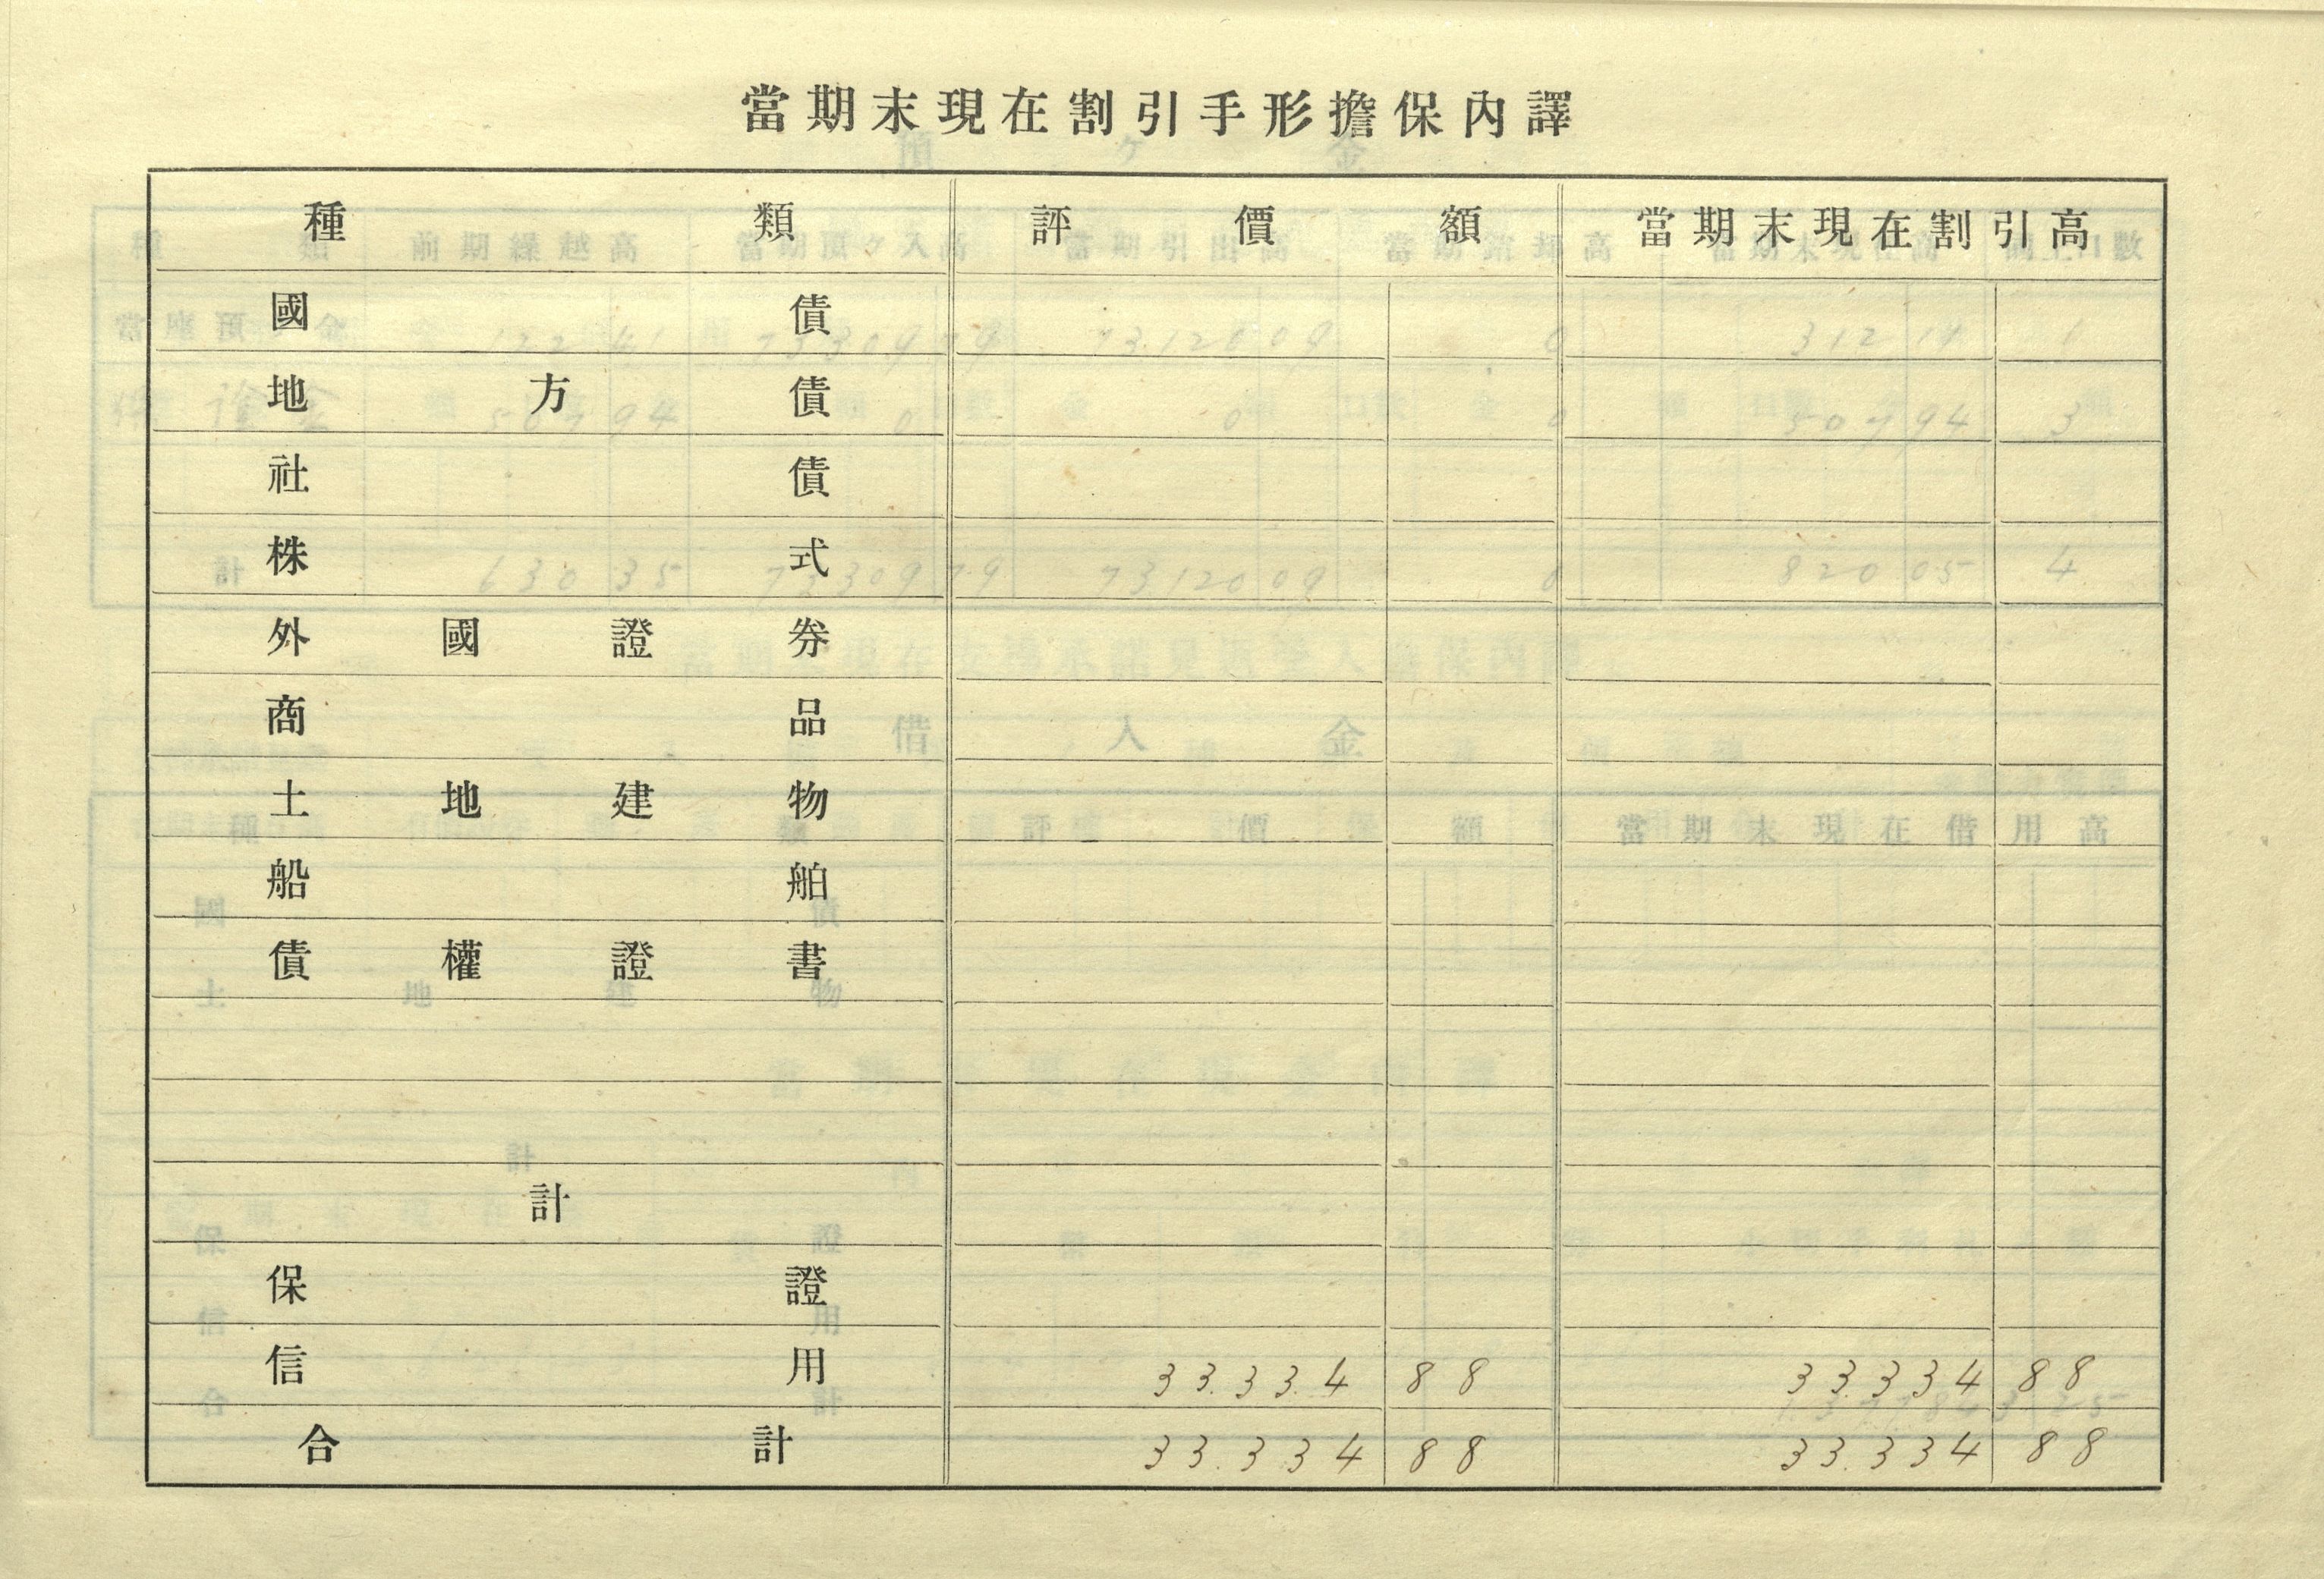 當期末現在割引手形擔保內譯
種類 評價額 當期末現在割引高
國債
地方債
社債
株式
外國證券
商品
土地建物
船舶
債權證書
計
保證
信用 33.334 88 33.334 88
合計 33.334 88 33.334 88